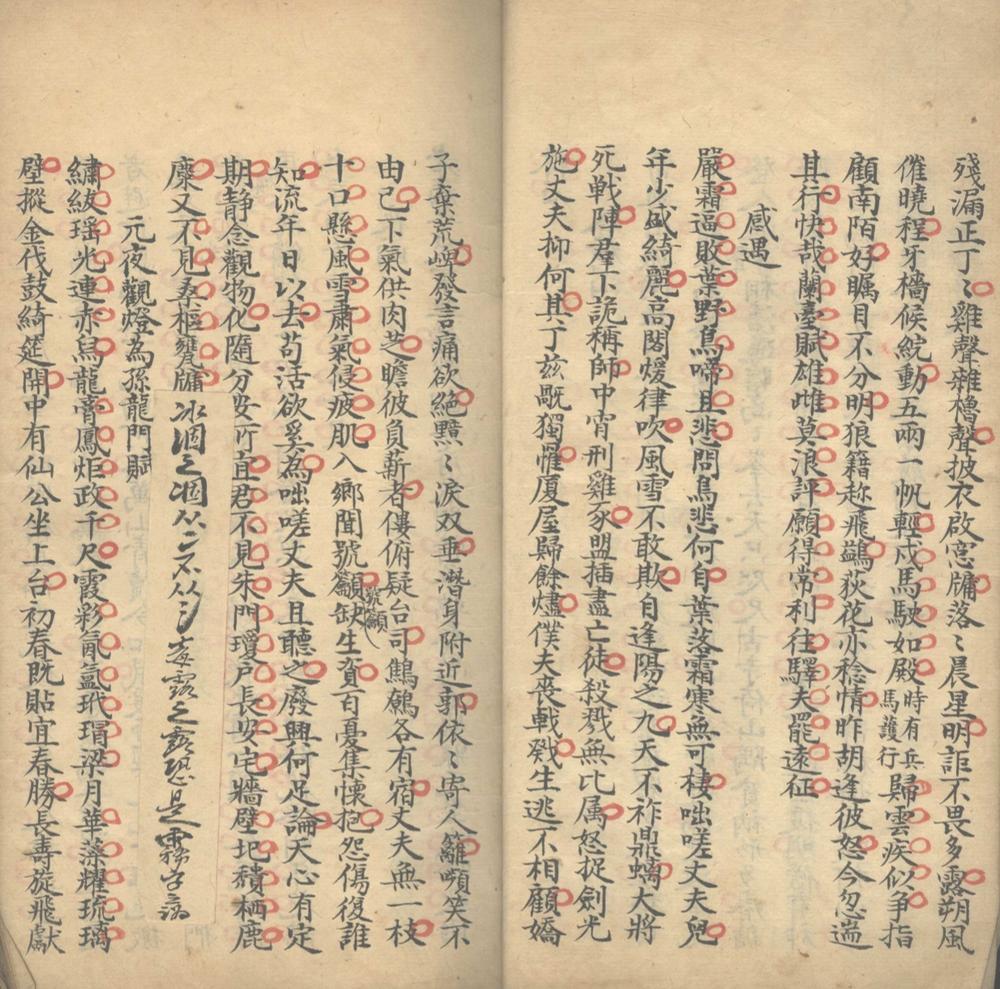 殘漏正丁丁雞聲雜櫓聲披衣啟窓牖落落晨星明詎不畏多露朔風
催曉程牙檣候綂動五兩一帆輕戍馬駛如殿時有兵馬護行歸雲疾似爭指
顧南陌好矚目不分明狼籍趁飛鷁荻花亦稔情昨胡逢彼怒今忽遄
其行快哉蘭臺賦雄雌莫浪評願得常利往驛夫罷遠征
感遇
嚴霜逼敗葉野鳥啼且悲問鳥悲何自葉落霜寒無可棲咄嗟丈夫兒
年少盛綺麗高閣煖律吹風雪不敢欺自逢陽之九天不祚鼎螭大將
死戰陣羣下詭稱師中宵刑雞豕盟插盡亡徒殺戮無比属怒捉劍光
施丈夫抑何其丁茲厩獨罹厦屋歸餘燼僕夫喪戟戣生逃不相顧嬌
子棄荒㟴發言痛欲絕黙黙淚双垂潛身附近郭依依寄人籬嚬笑不
由己下氣供肉芝瞻彼負薪者僂俯疑台司鷦鷯各有宿丈夫無一枝
十口懸風雪肅氣侵疲肌入鄉聞號籲缺生資百憂集懷抱怨傷復誰
籲
知流年日以去苟活欲奚為咄嗟丈夫且聽之廢興何足論天心有定
期靜念觀物化隨分安所宜君不見朱門瓊户長安宅牆壁圮積栖鹿
麋又不見桑樞甕牖
冰涸之涸从冫不从氵每露之露恐是霧字之譌
元夜觀燈為孫龍門賦
繡紱瑶光連赤舄龍膏鳳炬政千尺霞彩氤氳玳瑁梁月華藻耀琉璃
壁摐金伐鼓綺筵開中有仙公坐上台初春既貼宜春勝長壽旋飛獻